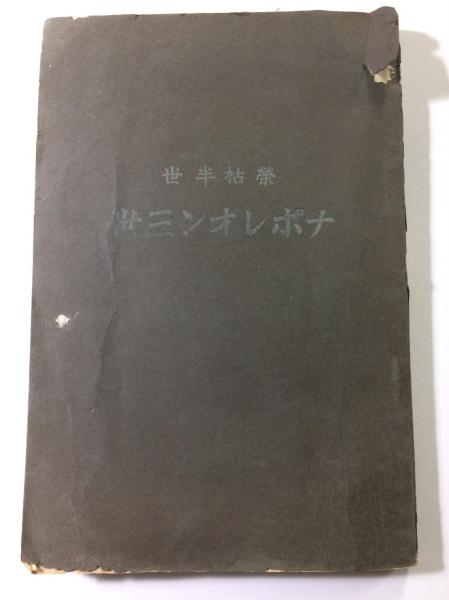 榮枯半世
ナポレオン三世